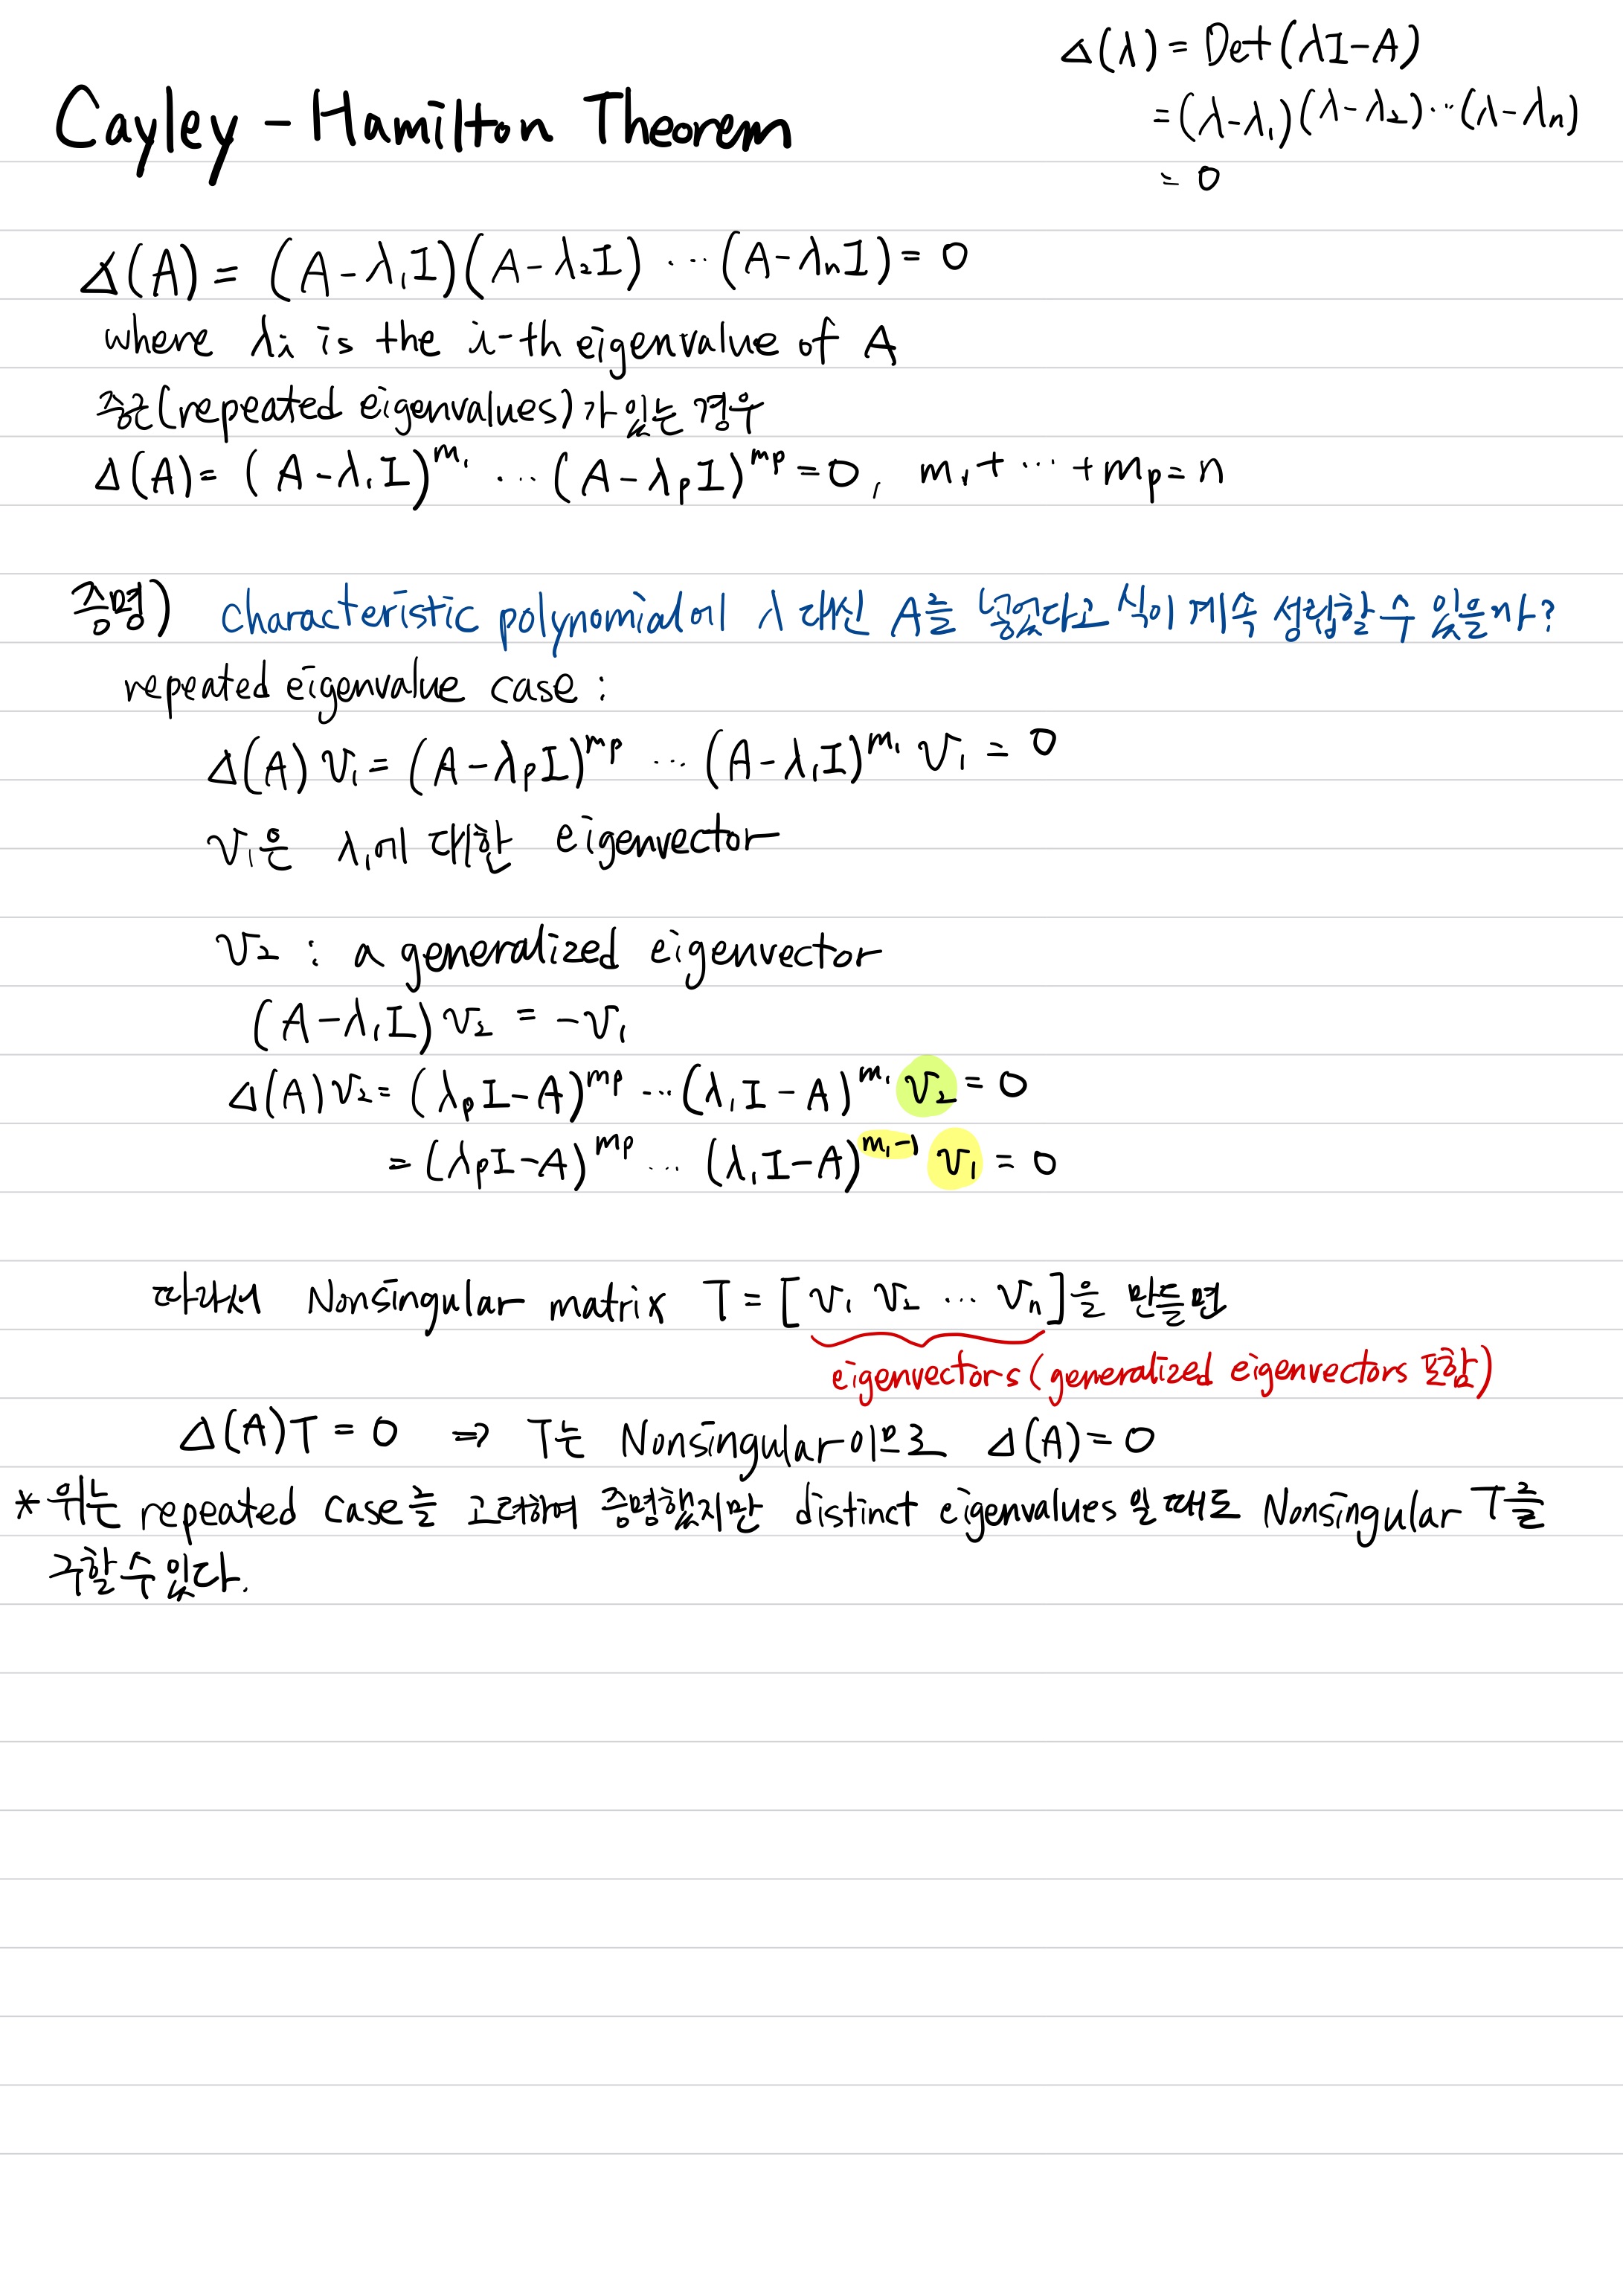 Δ(λ) = Det(λI-A)
= (λ-λ₁)(λ-λ₂)...(λ-λₙ)
= 0
Cayley - Hamilton Theorem
Δ(A) = (A-λ₁I)(A-λ₂I) ... (A-λₙI) = 0
where λᵢ is the i-th eigenvalue of A
중근(repeated eigenvalues)가 있는 경우
Δ(A) = (A-λ₁I)^m₁ ... (A-λₚI)^mₚ = 0, m₁+...+mₚ=n
증명) characteristic polynomial에 λ 대신 A를 넣었다고 식이 계속 성립할 수 있을까?
repeated eigenvalue case :
Δ(A)v₁ = (A-λₚI)^mₚ ... (A-λ₁I)^m₁ v₁ = 0
v₁은 λ₁에 대한 eigenvector
v₂ : a generalized eigenvector
(A-λ₁I)v₂ = -v₁
Δ(A)v₂ = (λₚI-A)^mₚ ... (λ₁I-A)^m₁ v₂ = 0
= (λₚI-A)^mₚ ... (λ₁I-A)^(m₁-1) v₁ = 0
따라서 Nonsingular matrix T = [v₁ v₂ ... vₙ]을 만들면
eigenvectors (generalized eigenvectors 포함)
Δ(A)T = 0 ⇒ T는 Nonsingular이므로 Δ(A) = 0
* 위는 repeated case를 고려하여 증명했지만 distinct eigenvalues 일 때도 Nonsingular T를
구할 수 있다.